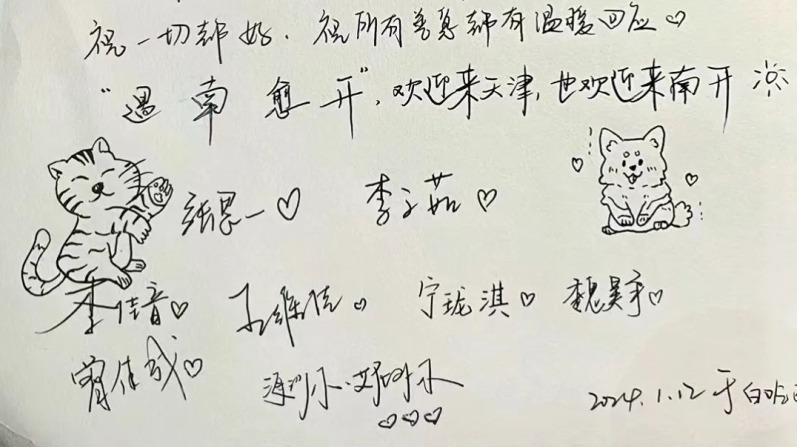 祝一切都好. 祝所有善意都有温暖回应♡
“遇南愈开”, 欢迎来天津, 也欢迎来南开
张思一♡ 李子茹♡
李佳音♡ 宁珑淇♡ 魏昊宇♡
曾佳
2024.1.12 于白哈